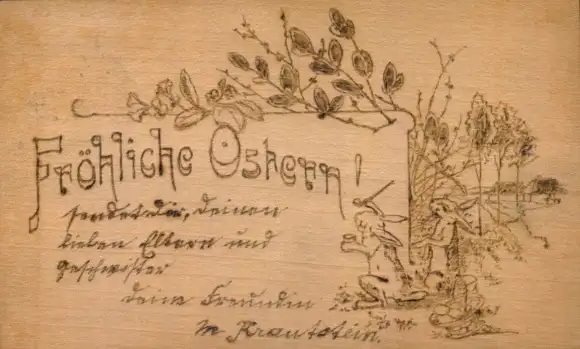 Fröhliche Ostern!
sendet dir, deinen
lieben Eltern und
Geschwister
deine Freundin
M Krautstein.